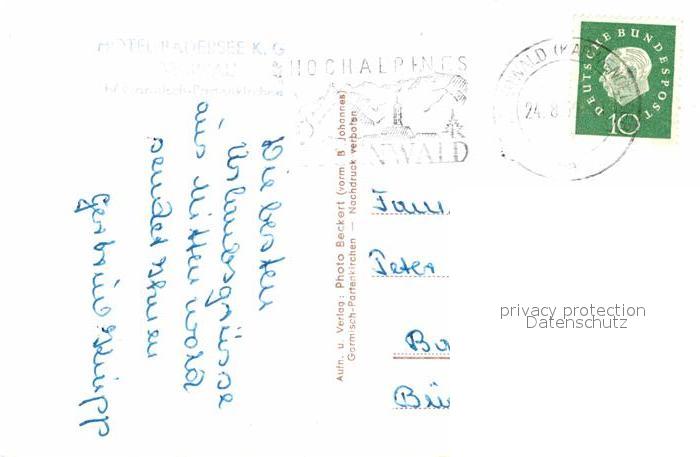 HOTEL BADERSEE K. G
Garmisch-Partenkirchen
HOCHALPINES
NWALD
WALD (KA
24. 8.
DEUTSCHE BUNDESPOST
10
Die besten
Urlaubsgrüsse
aus Mittenwald
sendet Ihnen
Aufn. u. Verlag: Photo Beckert (vorm. B. Johannes)
Garmisch-Partenkirchen — Nachdruck verboten
Fam.
Peter
Ba
Bü
privacy protection
Datenschutz